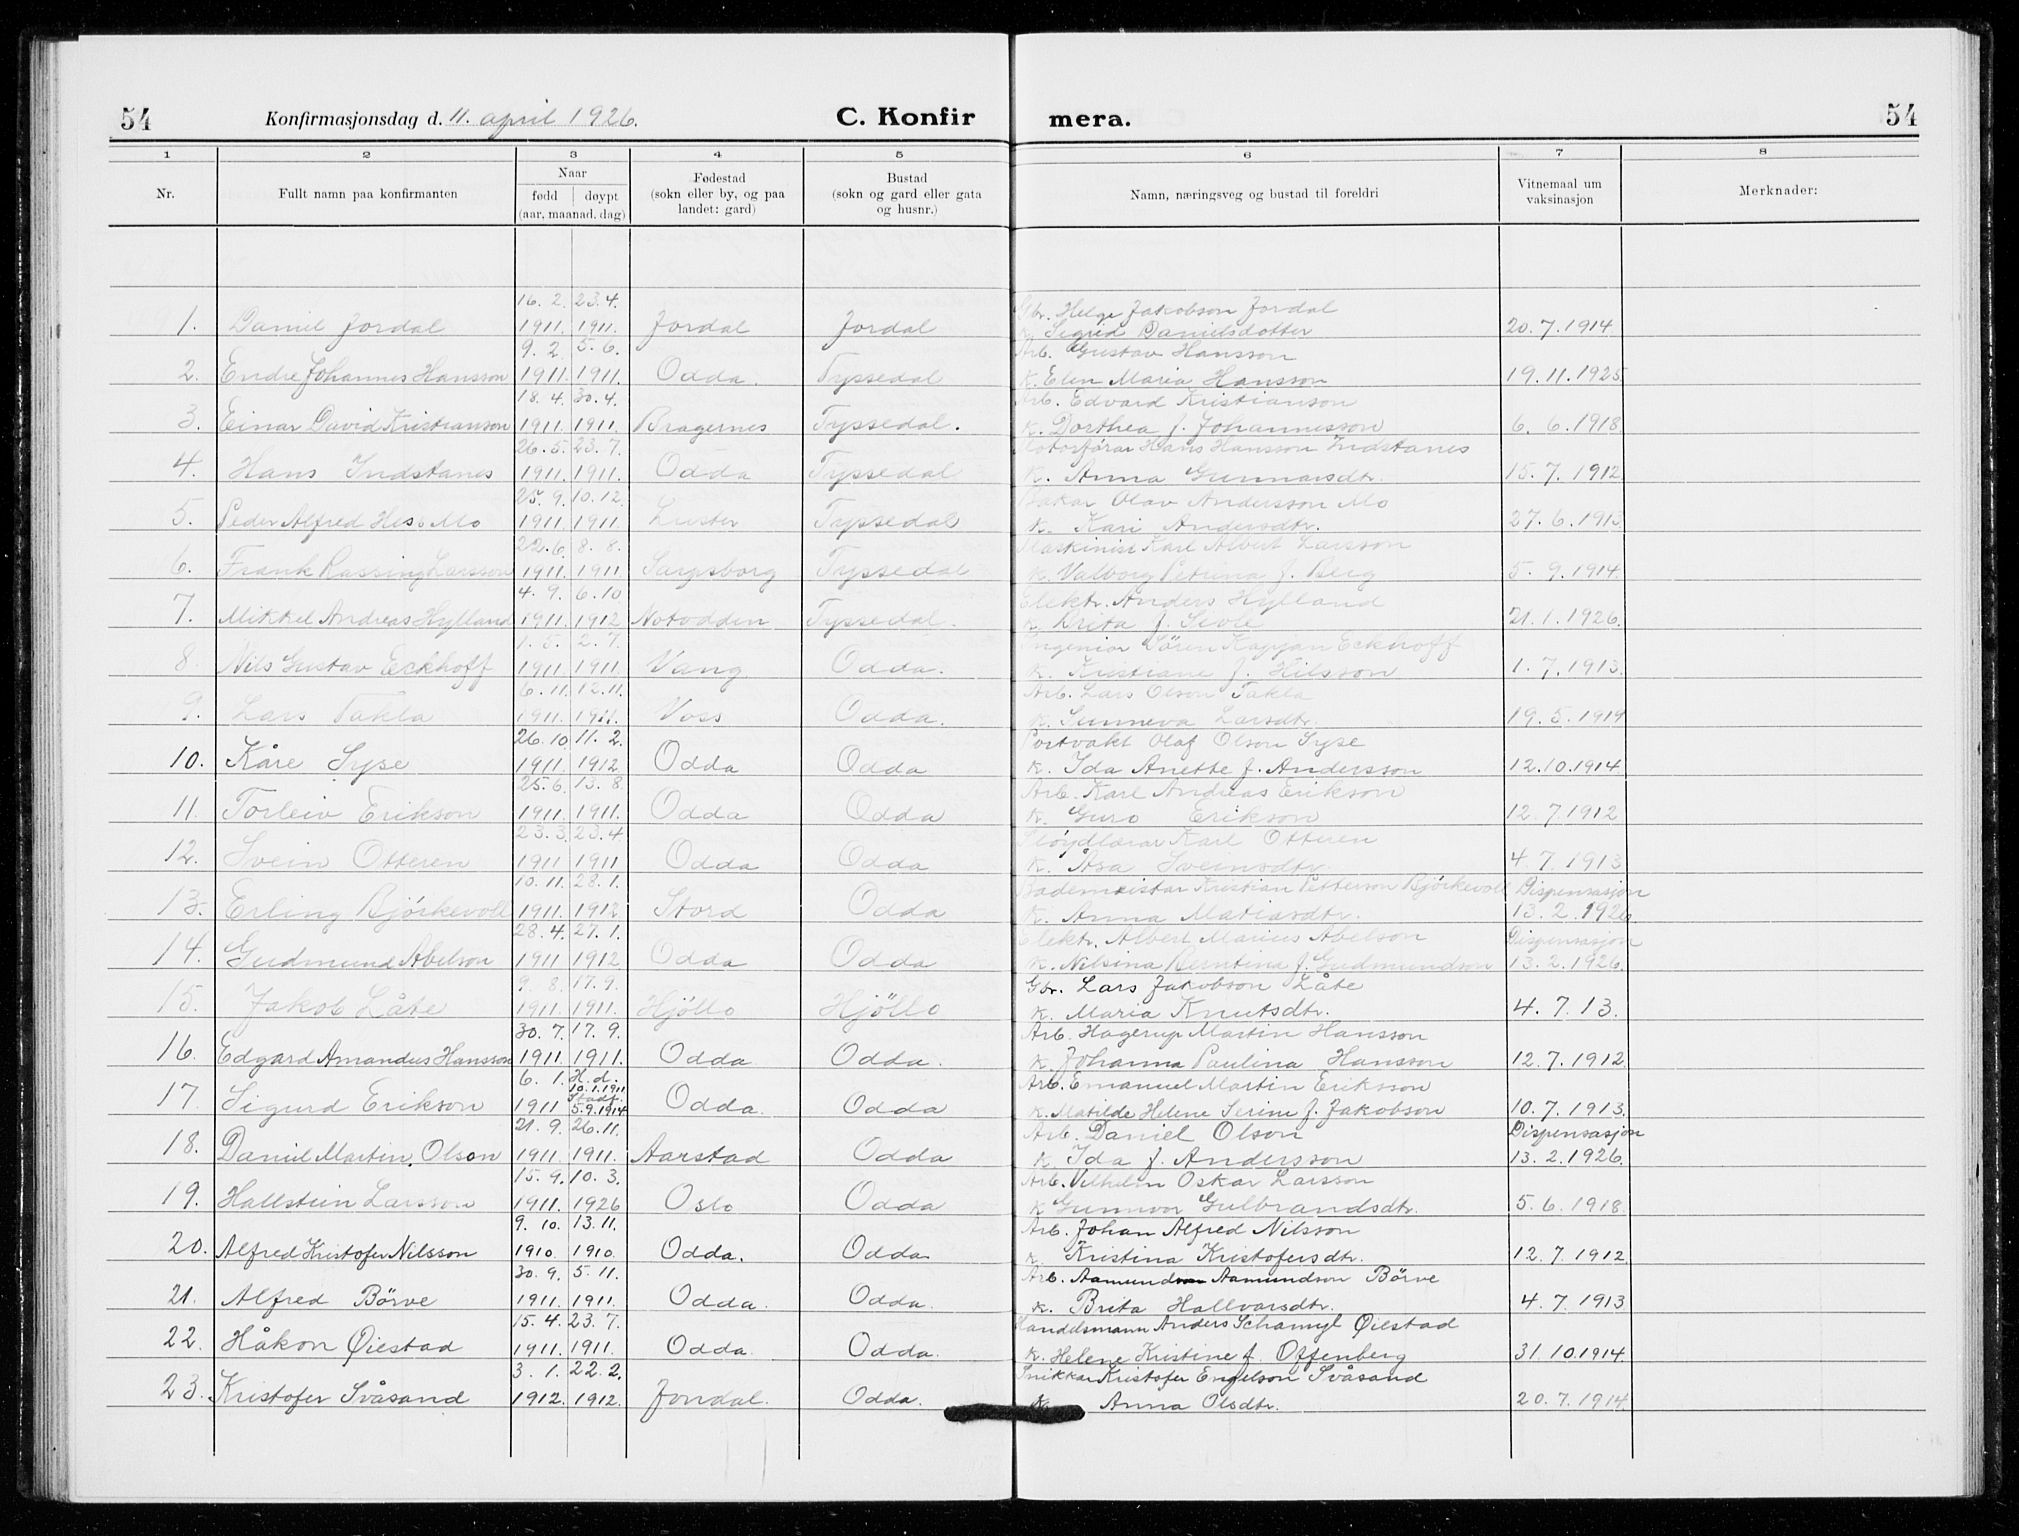 54 Konfirmasjonsdag d. 11. april 1926. C. Konfirmera. 54
1 2 3 4 5 6 7 8
Nr. Fullt namn paa konfirmanten Naar fødd døypt (aar, maanad, dag) Fødestad (sokn eller by, og paa landet: gard) Bustad (sokn og gard eller gata og husnr.) Namn, næringsveg og bustad til foreldri Vitnemaal um vaksinasjon Merknader:
16. 2. 23. 4. Gbr. Helge Jakobson Jordal
1. Daniel Jordal 1911. 1911. Jordal Jordal k. Sigrid Danielsdotter 20. 7. 1914
9. 2. 5. 6. Arb. Gustav Hansson
2. Endre Johannes Hansson 1911. 1911. Odda. Tyssedal k. Elen Maria Hansson 19. 11. 1925
18. 4. 30. 4. Arb. Edvard Kristianson
3. Einar David Kristianson 1911. 1911. Bragernes Tyssedal. k. Dorthea f. Johannesson 6. 6. 1918
26. 5. 23. 7. Motorförar Hans Hansson Indstanes
4. Hans Indstanes 1911. 1911. Odda Tyssedal k. Anna Gunnarsdtr. 15. 7. 1912
25. 9. 10. 12. Bakar Olav Andersson Mo
5. Peder Alfred Hess Mo 1911. 1911. Luster Tyssedal k. Kari Andersdtr. 27. 6. 1913
22. 6. 8. 8. Maskinist Karl Albert Larsson
6. Frank Rassing Larsson 1911. 1911. Sarpsborg Tyssedal k. Valborg Petrina f. Berg 5. 9. 1914.
4. 9. 6. 10 Elektr. Anders Hylland
7. Mikkel Andreas Hylland 1911. 1912 Notodden Tyssedal. k. Brita f. 21. 1. 1926.
1. 5. 2. 7. Ingeniør Sören Eckhoff
8. Nils Gustav Eckhoff 1911. 1911. Vang Odda. k. Kristiane f. Hilsson 1. 7. 1913.
6. 11. 12. 11. Arb. Lars Olson Takla
9. Lars Takla 1911. 1911. Voss Odda. k. Sunneva Larsdtr. 19. 5. 1919
26. 10 11. 2. Portvakt Olaf Olson Syse
10. Kåre Syse 1911. 1912. Odda Odda k. Ida Anette f. Andersson 12. 10. 1914
25. 6. 13. 8. Arb. Karl Andreas Erikson
11. Torleiv Erikson 1911. 1911. Odda Odda k. Guro Erikson 12. 7. 1912
23. 3. 23. 4 Sløydlærar Karl Otteren
12. Svein Otteren 1911 1911 Odda Odda k. Åsa Sveinsdtr. 4. 7. 1913
10. 11. 28. 1. Bademeistar Kristian Petterson Bjørkevoll Dispensasjon
13. Erling Bjørkevoll 1911. 1912. Stord Odda k. Anna Matiasdtr. 13. 2. 1926.
28. 4. 27. 1. Elektr. Albert Marius Abelson Dispensasjon
14. Gudmund Abelson 1911 1912 Odda Odda k. Nilsina Berntina f. Gudmundson 13. 2. 1926.
9. 8. 17. 9. Gbr. Lars Jakobson Låte
15. Jakob Låte 1911. 1911. Hjöllo Hjöllo k. Maria Knutsdtr. 4. 7. 13.
30. 7. 17. 9. Arb. Hagerup Martin Hansson
16. Edgard Amandus Hansson 1911. 1911. Odda Odda. k. Johanna Paulina Hansson 12. 7. 1912
6. 1. H. d. 10. 1. 1911 Arb. Emanuel Martin Eriksson
17. Sigurd Erikson 1911 Stadf. 5. 9. 1914 Odda. Odda k. Matilde Helene Serine f. Jakobson 10. 7. 1913.
21. 9. 26. 11. Arb. Daniel Olson Dispensasjon
18. Daniel Martin Olson 1911. 1911. Aarstad Odda k. Ida f. Andersson 13. 2. 1926.
15. 9. 10. 3. Arb. Vilhelm Oskar Larsson
19. Hallstein Larsson 1911. 1926 Oslo Odda k. Gunnvor Gulbrandsdtr. 5. 6. 1918.
9. 10. 13. 11. Arb. Johan Alfred Nilsson
20. Alfred Kristofer Nilsson 1910. 1910. Odda. Odda k. Kristina Kristofersdtr. 12. 7. 1912
30. 9. 5. 11. Arb. Aamund Aamundson Börve
21. Alfred Börve 1911. 1911. Odda. Odda. k. Brita Hallvarsdtr. 4. 7. 1913
15. 4. 23. 7. Handelsmann Anders Schamyl Øiestad
22. Håkon Øiestad 1911. 1911. Odda. Odda. k. Helene Kristine f. Offenberg 31. 10. 1914.
3. 1. 22. 2. Snikkar Kristofer Engelson Svåsand
23. Kristofer Svåsand 1912. 1912. Jondal. Odda. k. Anna Olsdtr. 20. 7. 1914